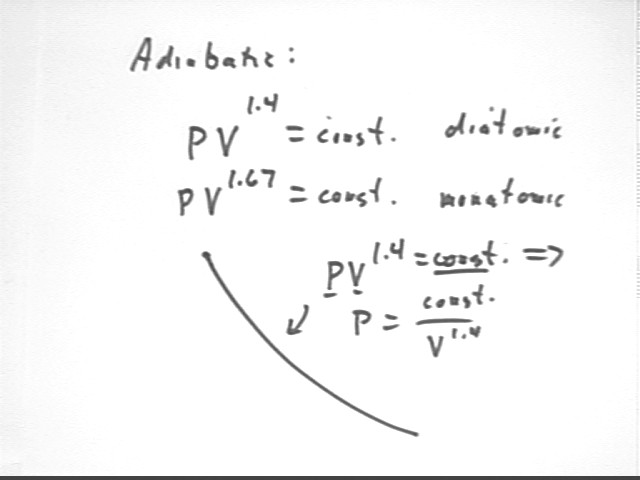 Adiabatic:
PV^1.4 = const. diatomic
PV^1.67 = const. monatomic
PV^1.4 = const. =>
P = const. / V^1.4